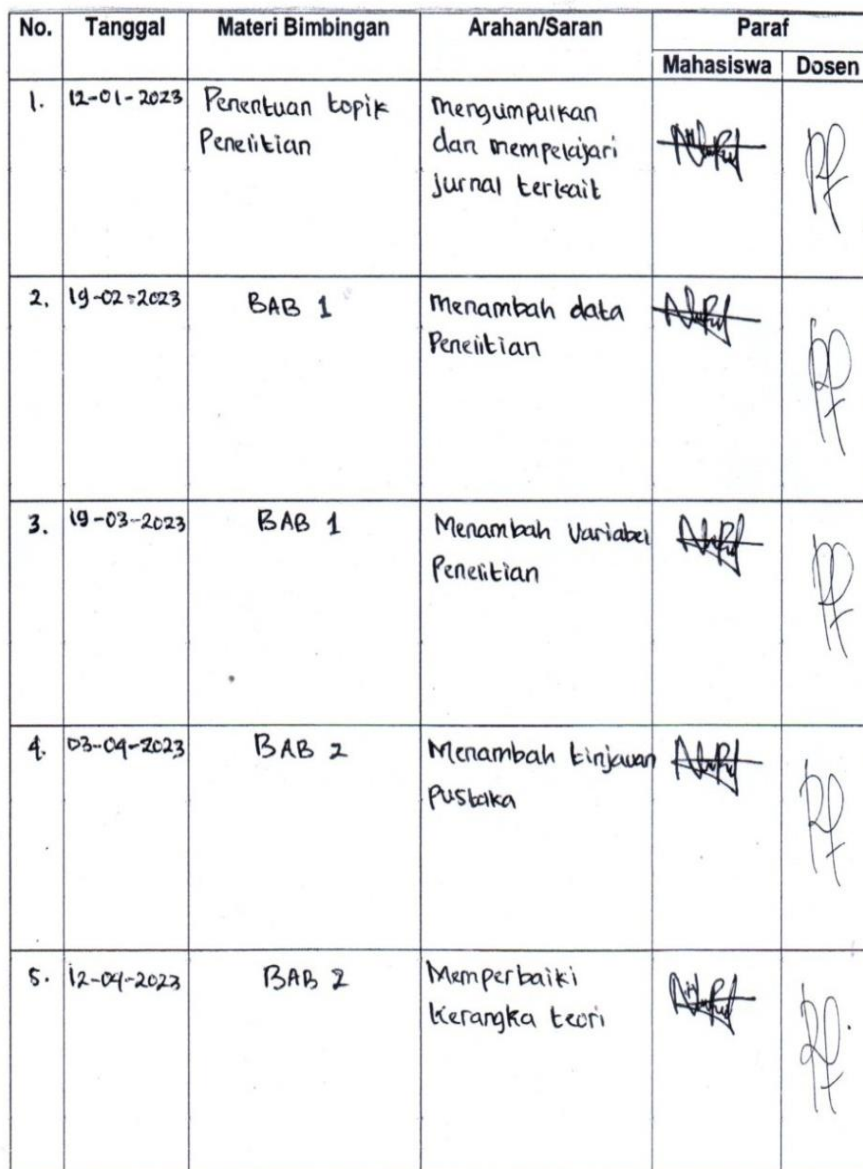 No. Tanggal Materi Bimbingan Arahan/Saran Paraf
Mahasiswa Dosen
1. 12-01-2023 Penentuan topik Mengumpulkan
Penelitian dan mempelajari
jurnal terkait
2. 19-02-2023 BAB 1 Menambah data
Penelitian
3. 19-03-2023 BAB 1 Menambah Variabel
Penelitian
4. 03-04-2023 BAB 2 Menambah tinjauan
Pustaka
5. 12-04-2023 BAB 2 Memperbaiki
kerangka teori